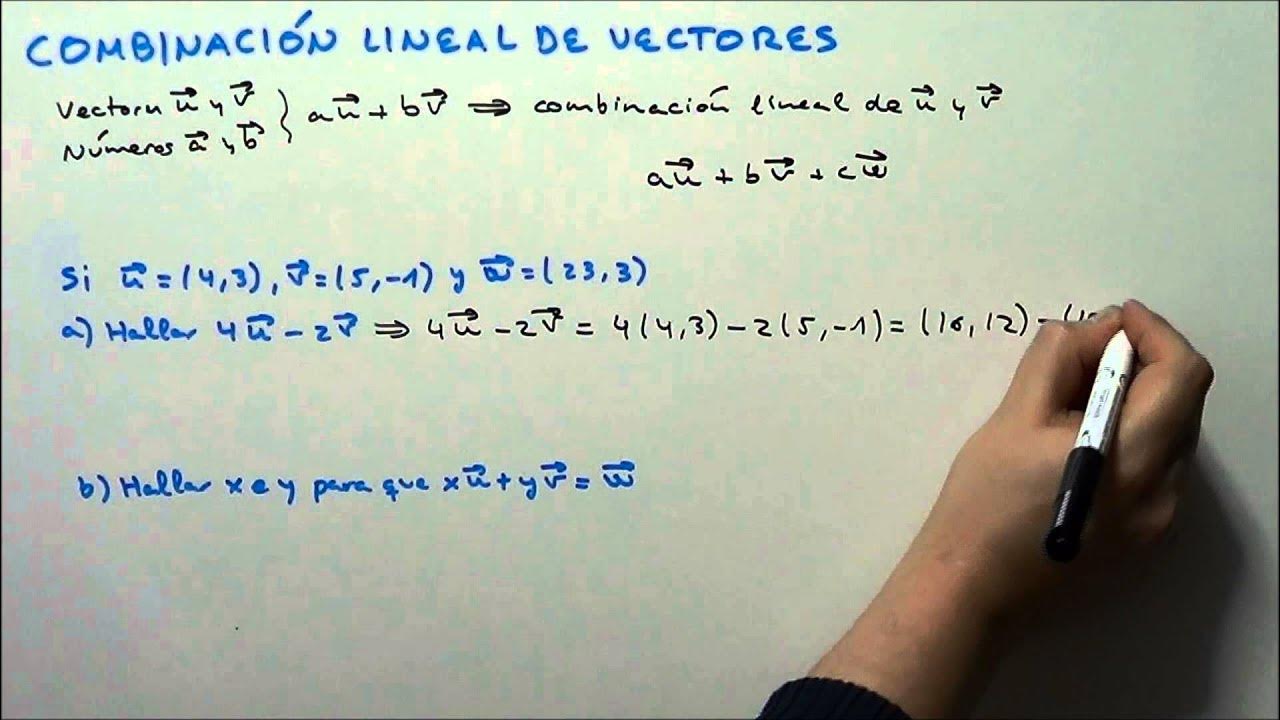 COMBINACIÓN LINEAL DE VECTORES
Vectorn u⃗ y v⃗ } au⃗ + bv⃗ ⇒ combinación lineal de u⃗ y v⃗
Números a⃗ y b⃗
au⃗ + bv⃗ + cw⃗
Si u⃗ = (4,3), v⃗ = (5,-1) y w⃗ = (23,3)
a) Hallar 4u⃗ - 2v⃗ ⇒ 4u⃗ - 2v⃗ = 4(4,3) - 2(5,-1) = (16,12) - (10
b) Hallar x e y para que xu⃗ + yv⃗ = w⃗